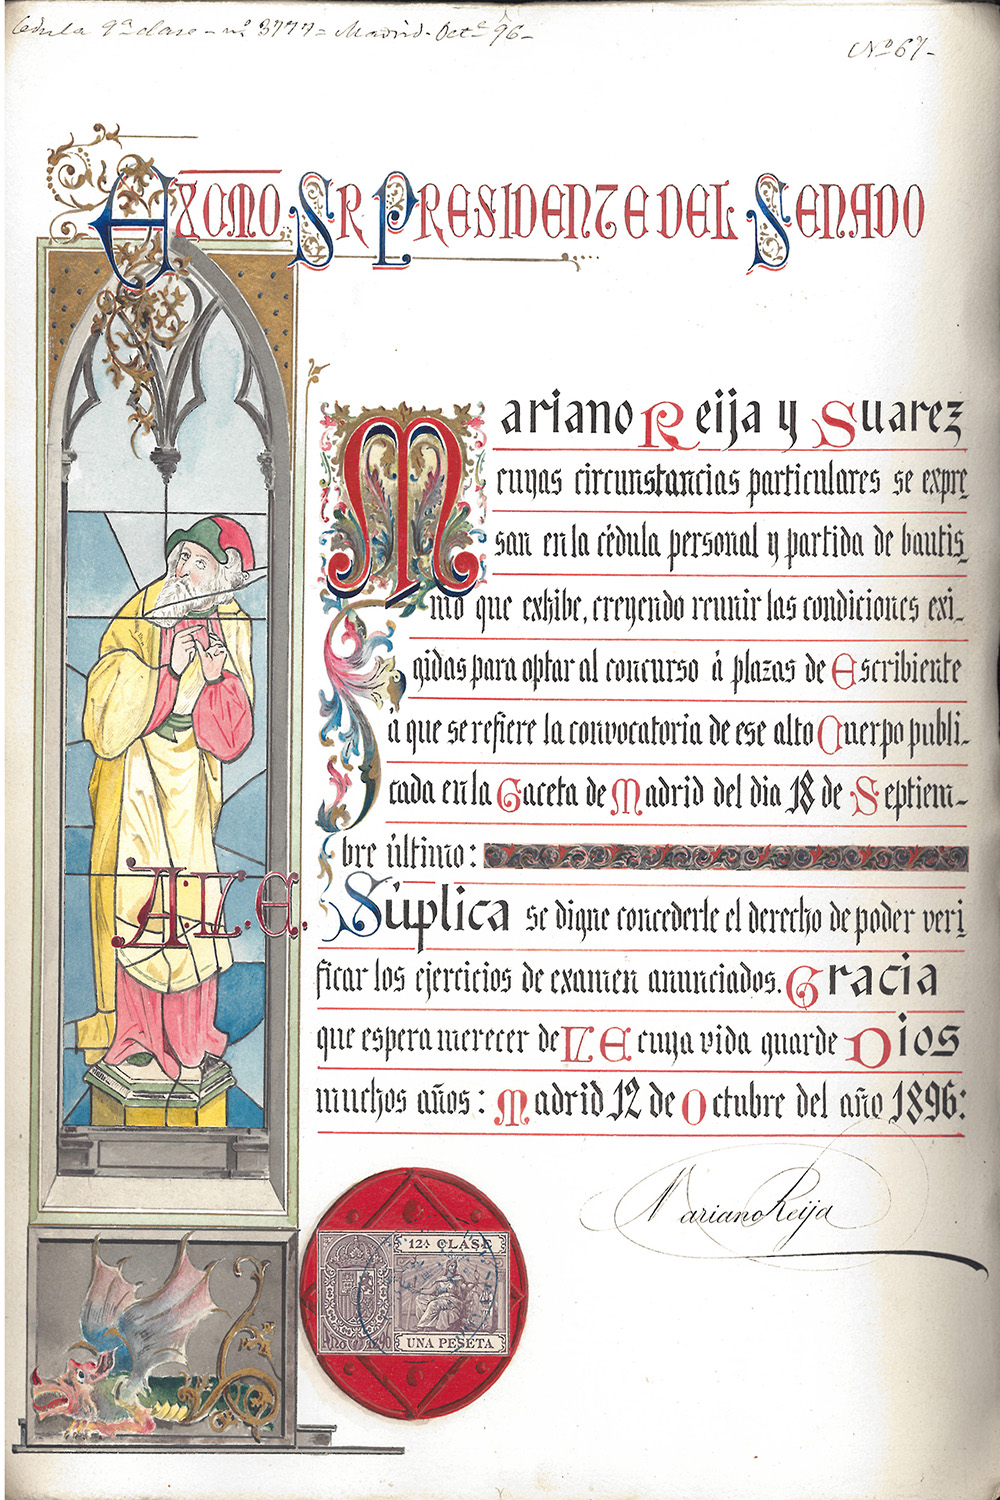 Cédula 9ª clase - nº 3777 - Madrid - Octe 96 -
Nº 67 -
EXCMO SR PRESIDENTE DEL SENADO
Mariano Reija y Suarez
cuyas circunstancias particulares se expre
san en la cédula personal y partida de bautis
mo que exhibe, creyendo reunir las condiciones exi-
gidas para optar al concurso á plazas de Escribiente
a que se refiere la convocatoria de ese alto Cuerpo publi-
cada en la Gaceta de Madrid del dia 18 de Septiem-
bre último:
A. V. E.
Súplica se digne concederle el derecho de poder veri
ficar los ejercicios de examen anunciados. Gracia
que espera merecer de V E cuya vida guarde Dios
muchos años: Madrid 12 de Octubre del año 1896:
Mariano Reija
12ª CLASE
Año 1896
UNA PESETA